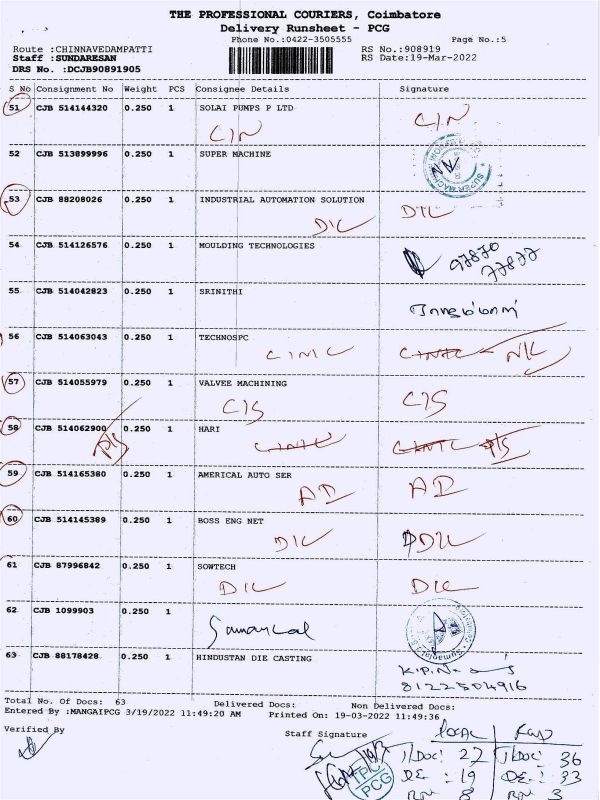 THE PROFESSIONAL COURIERS, Coimbatore
Delivery Runsheet - PCG
Phone No.:0422-3505555 Page No.:5
Route :CHINNAVEDAMPATTI RS No.:908919
Staff :SUNDARESAN RS Date:19-Mar-2022
DRS No. :DCJB90891905
S No Consignment No Weight PCS Consignee Details Signature
51 CJB 514144320 0.250 1 SOLAI PUMPS P LTD
CIN CIN
52 CJB 513899996 0.250 1 SUPER MACHINE
53 CJB 88208026 0.250 1 INDUSTRIAL AUTOMATION SOLUTION
DIL DIL
54 CJB 514126576 0.250 1 MOULDING TECHNOLOGIES
97870
77877
55 CJB 514042823 0.250 1 SRINITHI
56 CJB 514063043 0.250 1 TECHNOSPC
57 CJB 514055979 0.250 1 VALVEE MACHINING
C/S C/S
58 CJB 514062900 0.250 1 HARI
59 CJB 514165380 0.250 1 AMERICAL AUTO SER
AD AD
60 CJB 514145389 0.250 1 BOSS ENG NET
DIL DIL
61 CJB 87996842 0.250 1 SOWTECH
DIL DIL
62 CJB 1099903 0.250 1
63 CJB 88178428 0.250 1 HINDUSTAN DIE CASTING
8122504916
Total No. Of Docs: 63 Delivered Docs: Non Delivered Docs:
Entered By :MANGAIPCG 3/19/2022 11:49:20 AM Printed On: 19-03-2022 11:49:36
Verified By Staff Signature
LOCAL
T/Doc: 27 T/Doc: 36
DE: 19 DE: 33
RN 8 RN 3
TPC
PCG